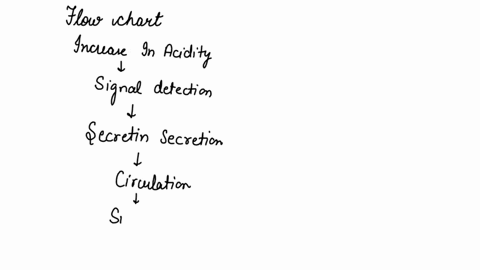 Flow chart
Increase In Acidity
↓
Signal detection
↓
Secretin Secretion
↓
Circulation
↓
S